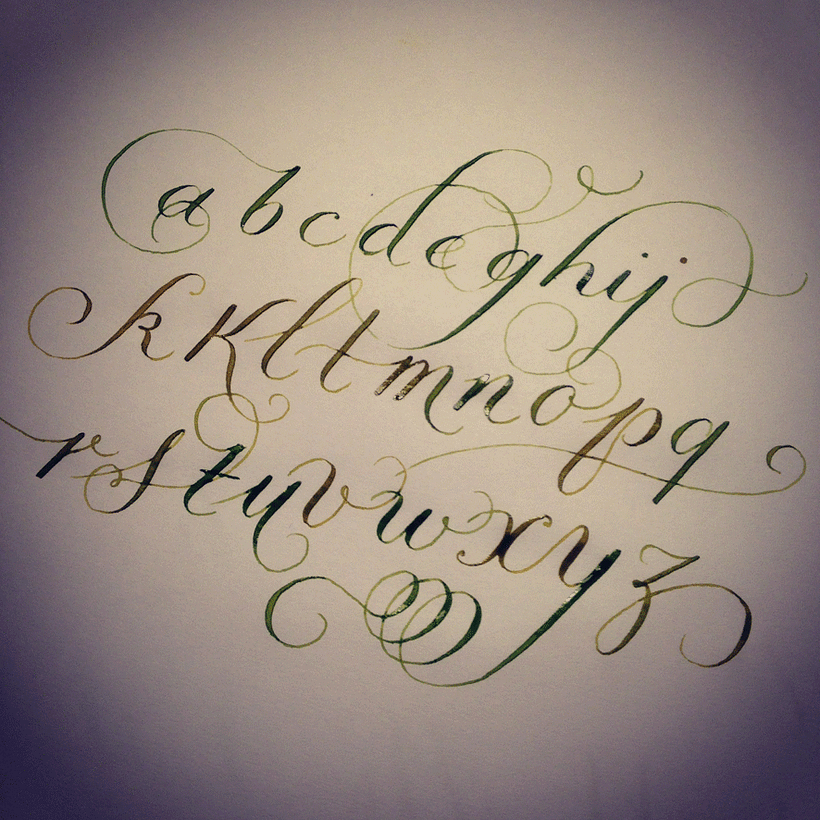 a b c d e g h i j
k K l t m n o p q
r s t u v w x y z